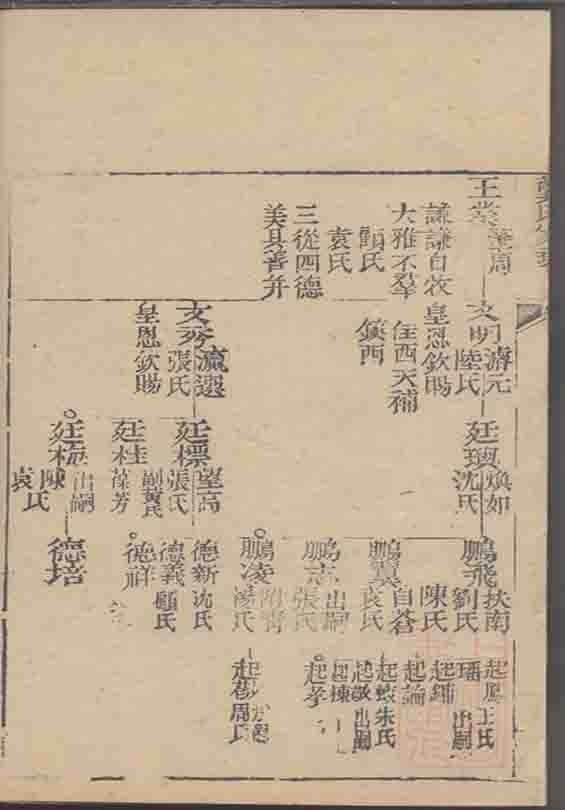 王業
筆周
謙謙自牧
大雅不羣
顧氏
袁氏
三從四德
美具善并
文明
濬元
陸氏
皇恩欽賜
住西天補
鎮西
文秀
瀛選
張氏
皇恩欽賜
廷璵
煥如
沈氏
廷標
望高
張氏
副黃氏
廷桂
葆芳
廷梅
出嗣
陳氏
袁氏
鵬飛
扶南
劉氏
陳氏
鵬翼
自蒼
袁氏
鵬志
出嗣
張氏
鵬凌
湯氏
德新
沈氏
德義
顧氏
德祥
德培
起鳳
王氏
璠
出嗣
起鋪
起論
起蛟
朱氏
起敬
出嗣
起棟
起孝
周氏